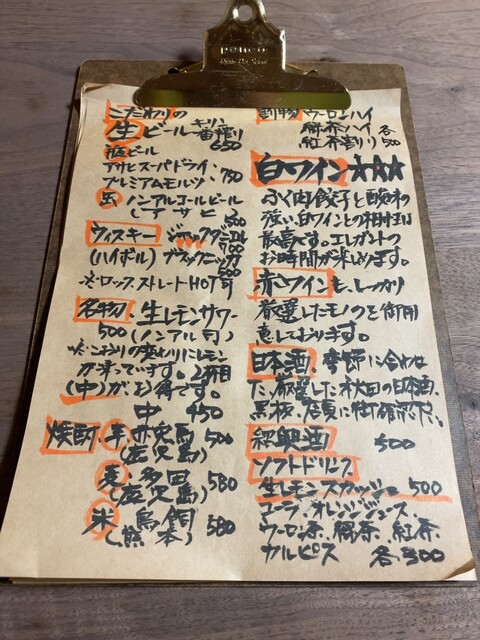 penco
こだわりの
生ビール キリン
一番搾り
650
瓶ビール
アサヒスーパードライ・
プレミアムモルツ 750
ノンアルコールビール
(アサヒ) 500
ウィスキー
(ハイボール)
700
500
※ロック、ストレートHOT可
名物・生レモンサワー
500 (ノンアル可)
※こおりの変わりにレモン
が凍っています。2杯目
(中)がお得です。
中 450
焼酎 芋・赤兎馬 500
(鹿児島)
麦・多田 580
(鹿児島)
米・鳥飼 580
(熊本)
割物 ウーロンハイ
緑茶ハイ 各
紅茶割り 500
白ワイン★★★
ぶく肉餃子と酸味の
強い白ワインとの相性は
最高です。エレガントの
お時間が楽しめます。
赤ワインも、しっかり
厳選したモノのを御用
意しております。
日本酒、季節に合わせ
た、厳選した秋田の日本酒、
黒板、店員に御確認下さい。
紹興酒 500
ソフトドリンク
生レモンスカッシュ 500
コーラ、オレンジジュース、
ウーロン茶、緑茶、紅茶
カルピス 各300